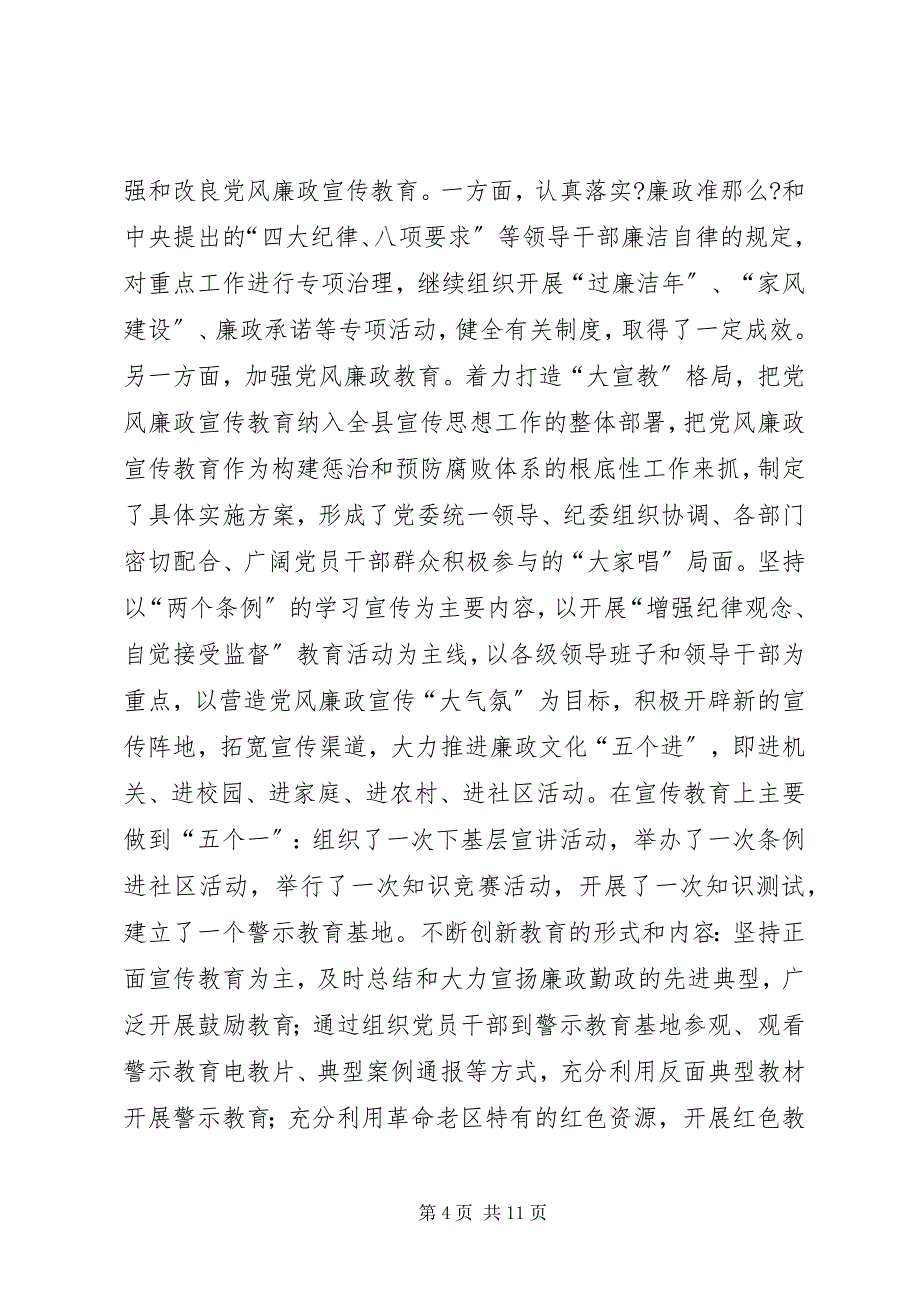 强和改良党风廉政宣传教育。一方面，认真落实?廉政准那么?和
中央提出的“四大纪律、八项要求〞等领导干部廉洁自律的规定，
对重点工作进行专项治理，继续组织开展“过廉洁年〞、“家风
建设〞、廉政承诺等专项活动，健全有关制度，取得了一定成效。
另一方面，加强党风廉政教育。着力打造“大宣教〞格局，把党
风廉政宣传教育纳入全县宣传思想工作的整体部署，把党风廉政
宣传教育作为构建惩治和预防腐败体系的根底性工作来抓，制定
了具体实施方案，形成了党委统一领导、纪委组织协调、各部门
密切配合、广阔党员干部群众积极参与的“大家唱〞局面。坚持
以“两个条例〞的学习宣传为主要内容，以开展“增强纪律观念、
自觉接受监督〞教育活动为主线，以各级领导班子和领导干部为
重点，以营造党风廉政宣传“大气氛〞为目标，积极开辟新的宣
传阵地，拓宽宣传渠道，大力推进廉政文化“五个进〞，即进机
关、进校园、进家庭、进农村、进社区活动。在宣传教育上主要
做到“五个一〞：组织了一次下基层宣讲活动，举办了一次条例
进社区活动，举行了一次知识竞赛活动，开展了一次知识测试，
建立了一个警示教育基地。不断创新教育的形式和内容：坚持正
面宣传教育为主，及时总结和大力宣扬廉政勤政的先进典型，广
泛开展鼓励教育；通过组织党员干部到警示教育基地参观、观看
警示教育电教片、典型案例通报等方式，充分利用反面典型教材
开展警示教育；充分利用革命老区特有的红色资源，开展红色教
第 4 页 共 11 页